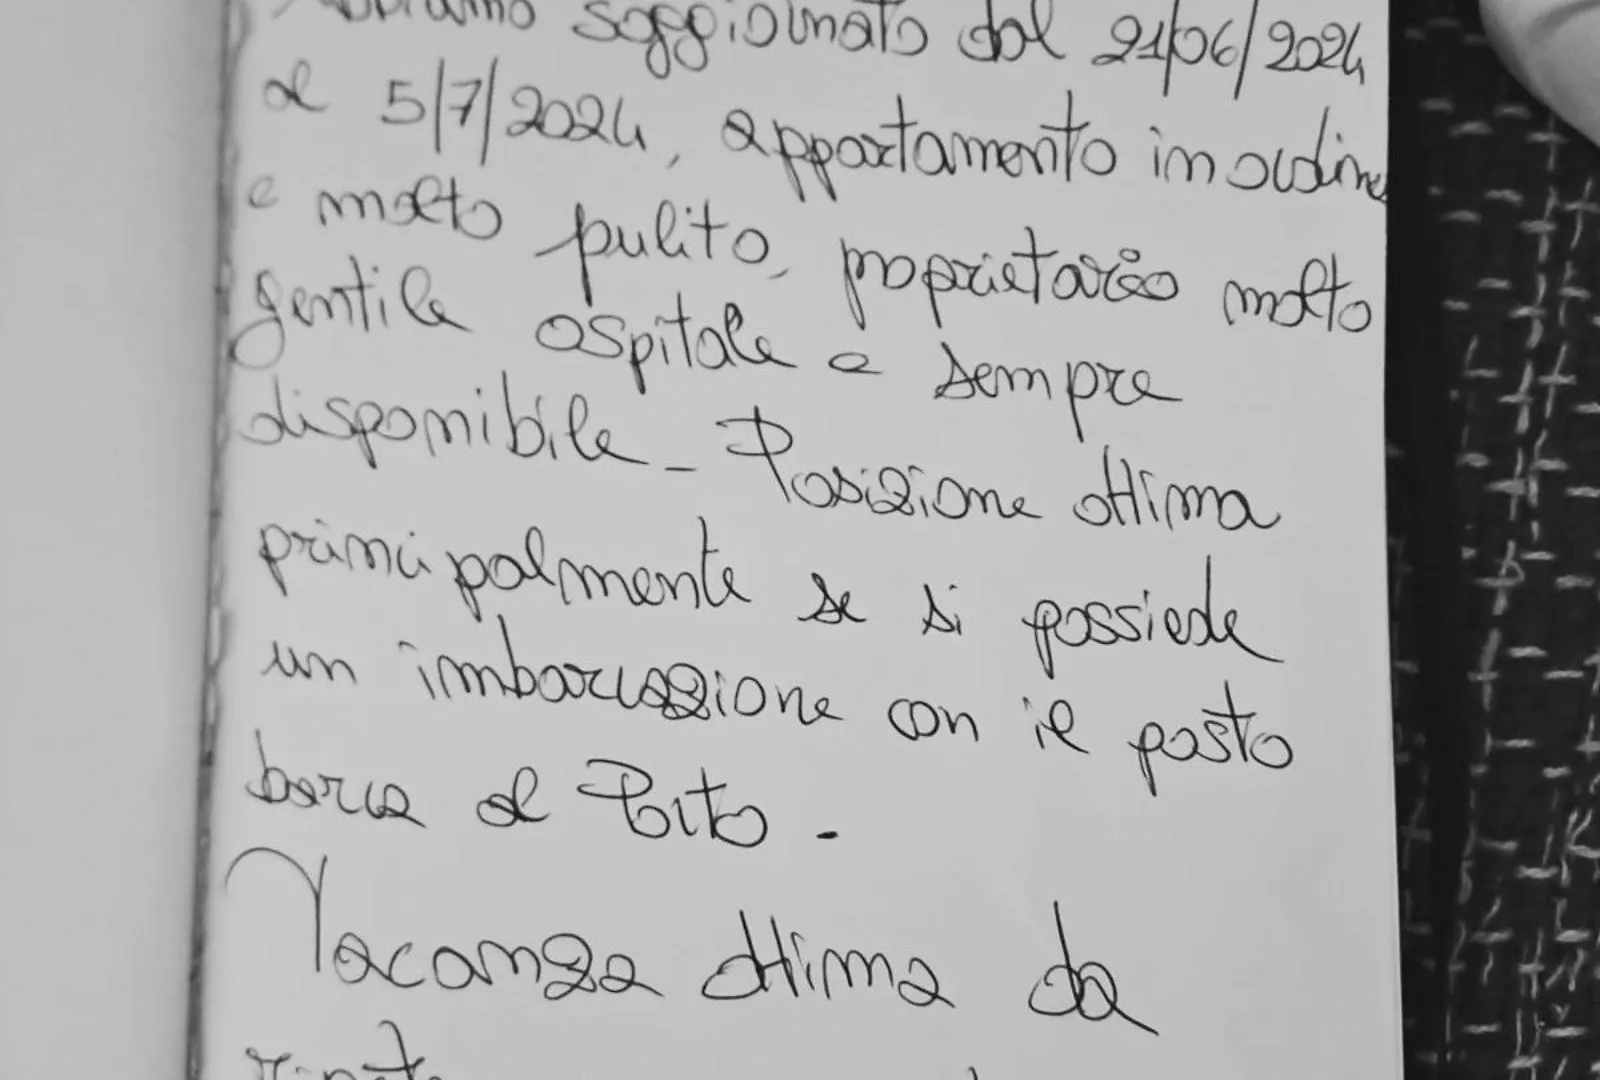 Abbiamo soggiornato dal 21/06/2024
al 5/7/2024, appartamento in ordine
e molto pulito, proprietario molto
gentile ospitale e sempre
disponibile - Posizione ottima
principalmente se si possiede
un imbarcazione con il posto
barca al Porto -
Vacanza ottima da